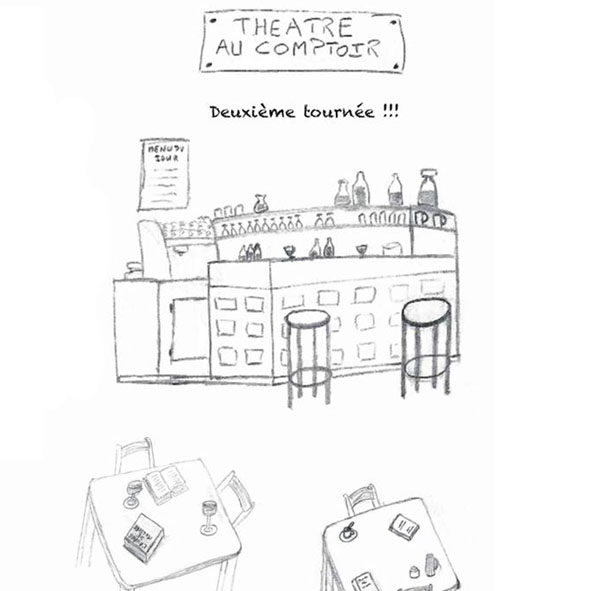 THEATRE
AU COMPTOIR
Deuxième tournée !!!
MENU DU
JOUR